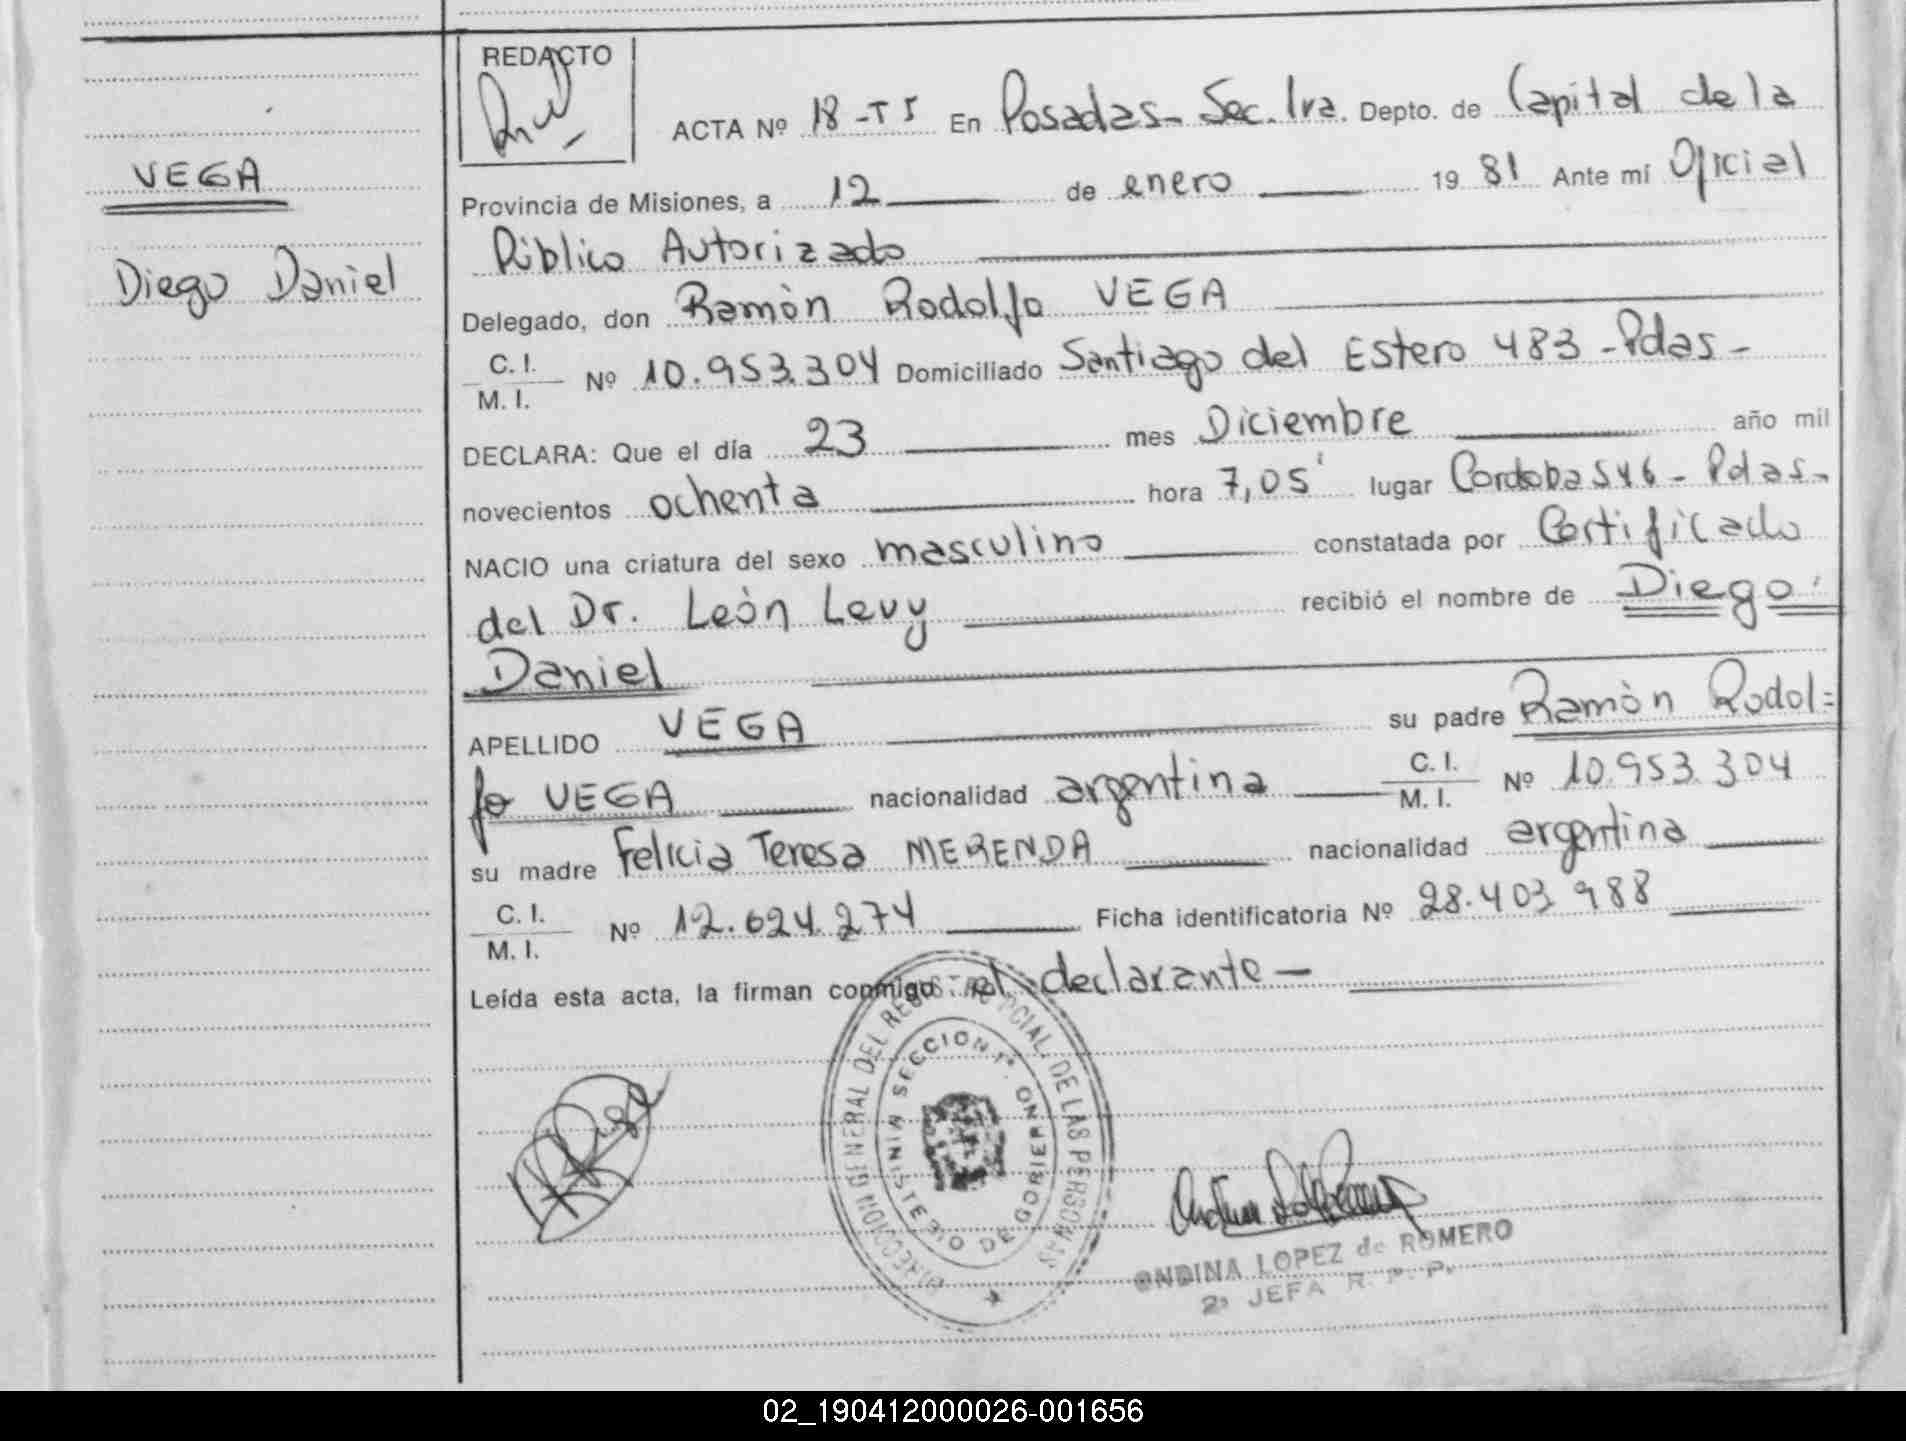 REDACTO
ACTA Nº 18-T5 En Posadas- Sec. 1ra. Depto. de Capital de la
VEGA
Provincia de Misiones, a 12 de enero 19 81 Ante mí Oficial
Público Autorizado
Diego Daniel
Delegado, don Ramòn Rodolfo VEGA
C. I.
M. I.
Nº 10.953.304 Domiciliado Santiago del Estero 483 -Pdas-
DECLARA: Que el día 23 mes Diciembre año mil
novecientos ochenta hora 7,05' lugar Cordoba 546 - Pdas-
NACIO una criatura del sexo masculino constatada por Certificado
del Dr. Leòn Levy recibió el nombre de Diego
Daniel
APELLIDO VEGA su padre Ramòn Rodol=
fo VEGA nacionalidad argentina C. I. M. I. Nº 10.953.304
su madre Felicia Teresa MERENDA nacionalidad argentina
C. I.
M. I.
Nº 12.624.274 Ficha identificatoria Nº 28.403.988
Leída esta acta, la firman conmigo el declarante-
DIRECCION GENERAL DEL REGISTRO PCIAL. DE LAS PERSONAS
MINISTERIO DE GOBIERNO
SECCION 1ª
ONDINA LOPEZ de ROMERO
2ª JEFA R. P. P.
02_190412000026-001656